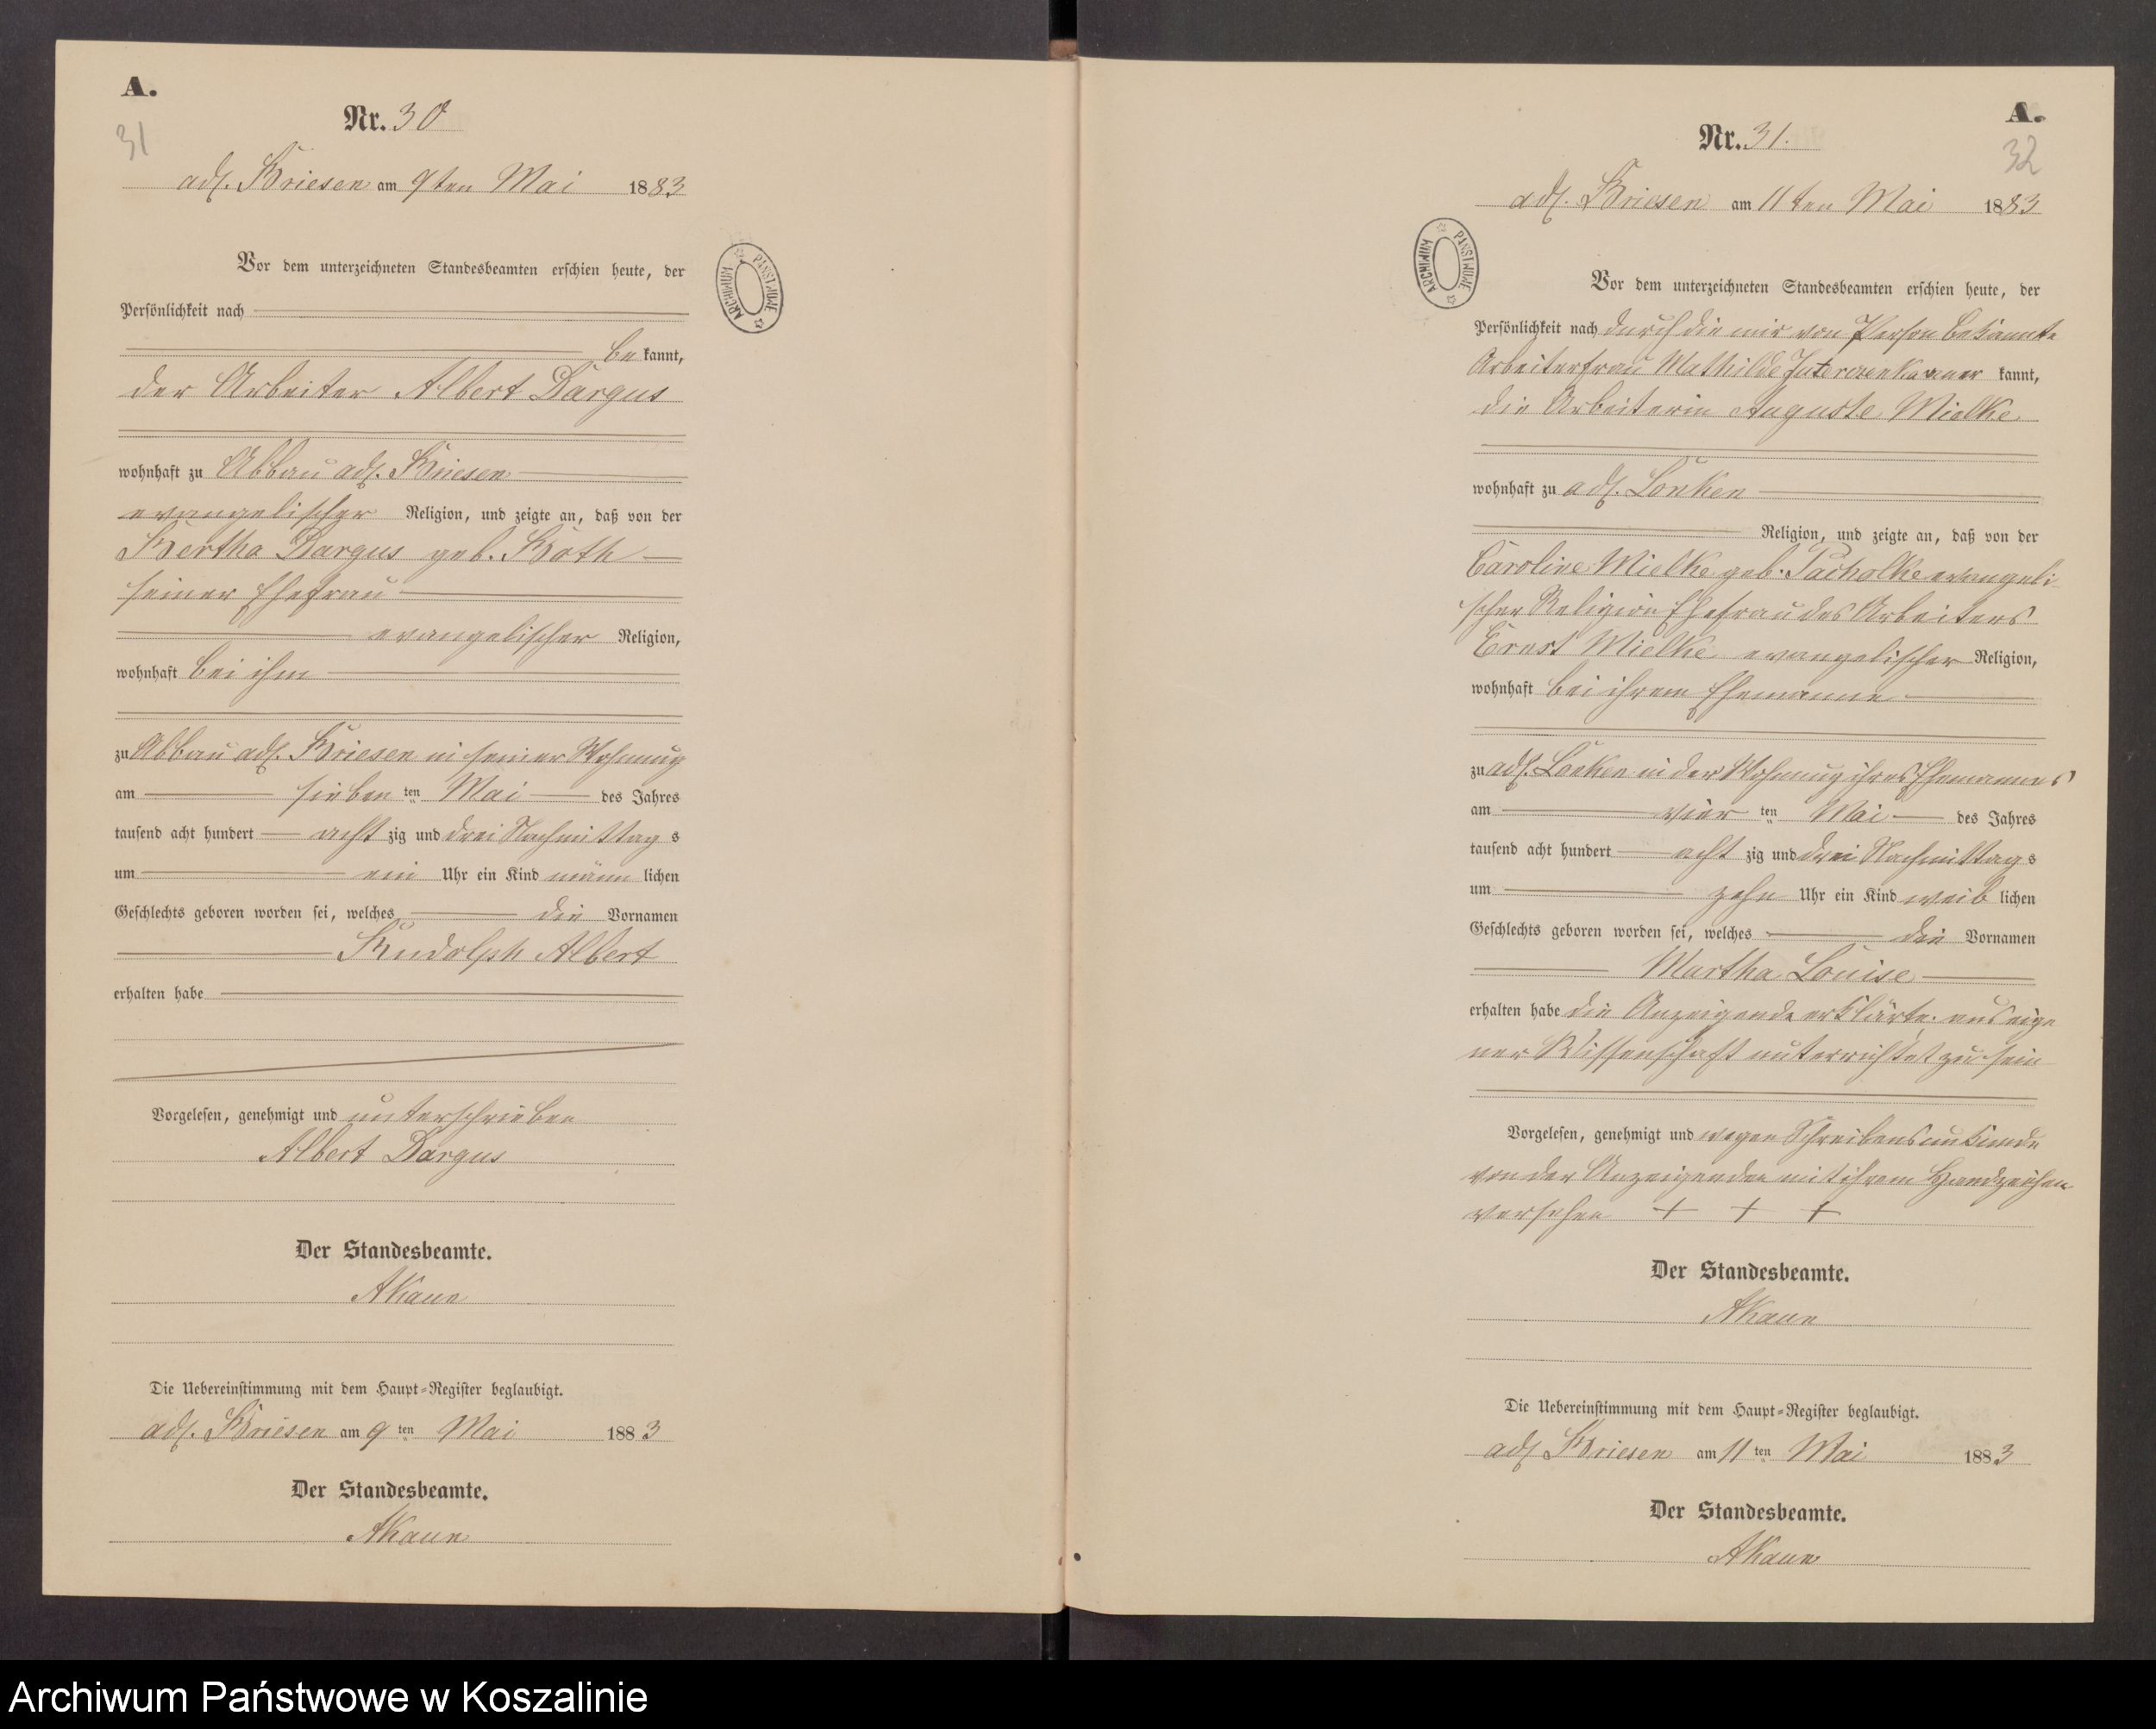 A.
31
Nr. 30
adl. Briesen am 9ten Mai 1883
Vor dem unterzeichneten Standesbeamten erschien heute, der
Persönlichkeit nach
bekannt,
der Arbeiter Albert Dargus
wohnhaft zu Abbau adl. Briesen
evangelischer Religion, und zeigte an, daß von der
Bertha Dargus geb. Both
seiner Ehefrau
evangelischer Religion,
wohnhaft bei ihm
zu Abbau adl. Briesen in seiner Wohnung
am sieben ten Mai des Jahres
tausend acht hundert acht zig und drei Nachmittag s
um ein Uhr ein Kind männ lichen
Geschlechts geboren worden sei, welches die Vornamen
Rudolph Albert
erhalten habe
Vorgelesen, genehmigt und unterschrieben
Albert Dargus
Der Standesbeamte.
AKaun
Die Uebereinstimmung mit dem Haupt=Register beglaubigt.
adl. Briesen am 9 ten Mai 1883
Der Standesbeamte.
AKaun
ARCHIWUM PAŃSTWOWE
A.
32
Nr. 31.
adl. Briesen am 11ten Mai 1883
ARCHIWUM PAŃSTWOWE
Vor dem unterzeichneten Standesbeamten erschien heute, der
Persönlichkeit nach durch die mir von Person bekannte
Arbeiterfrau Mathilde kannt,
die Arbeiterin Auguste Mielke
wohnhaft zu adl. Lonken
Religion, und zeigte an, daß von der
Caroline Mielke geb. Pacholke evangeli
scher Religion Ehefrau des Arbeiters
Ernst Mielke evangelischer Religion,
wohnhaft bei ihrem Ehemanne
zu adl. Lonken in der Wohnung ihres Ehemannes
am vier ten Mai des Jahres
tausend acht hundert acht zig und drei Nachmittag s
um zehn Uhr ein Kind weib lichen
Geschlechts geboren worden sei, welches die Vornamen
Martha Louise
erhalten habe die Anzeigende erklärte, aus eige
ner Wissenschaft unterrichtet zu sein
Vorgelesen, genehmigt und wegen Schreibensunkunde
von der Anzeigenden mit ihrem Handzeichen
versehen + + +
Der Standesbeamte.
AKaun
Die Uebereinstimmung mit dem Haupt=Register beglaubigt.
adl Briesen am 11 ten Mai 1883
Der Standesbeamte.
AKaun
Archiwum Państwowe w Koszalinie